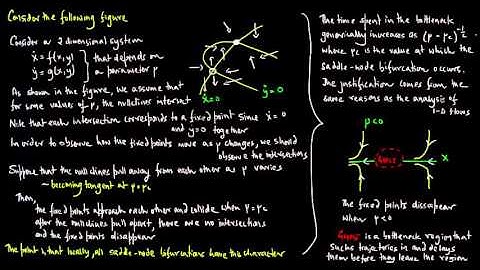 Consider the following figure
Consider a 2 dimensional system
ẋ = f(x,y)
ẏ = g(x,y)
that depends
on parameter p
As shown in the figure, we assume that
for some values of p, the nullclines intersect
ẋ = 0
ẏ = 0
Note that each intersection corresponds to a fixed point since ẋ = 0
and ẏ = 0 together
In order to observe how the fixed points move as p changes, we should
observe the intersections
Suppose that the nullclines pull away from each other as p varies
~ becoming tangent at p = pc
Then,
the fixed points approach each other and collide when p = pc
after the nullclines pull apart, there are no intersections
and the fixed points disappear
The point is that locally, all saddle-node bifurcations have this character
The time spent in the bottleneck
generically increases as (p - pc)^-1/2
where pc is the value at which the
saddle-node bifurcation occurs.
The justification comes from the
same reasons as the analysis of
1-D flows
p<0
Ghost
x
The fixed points disappear
when p<0
Ghost is a bottleneck region that
sucks trajectories in and delays
them before they leave the region